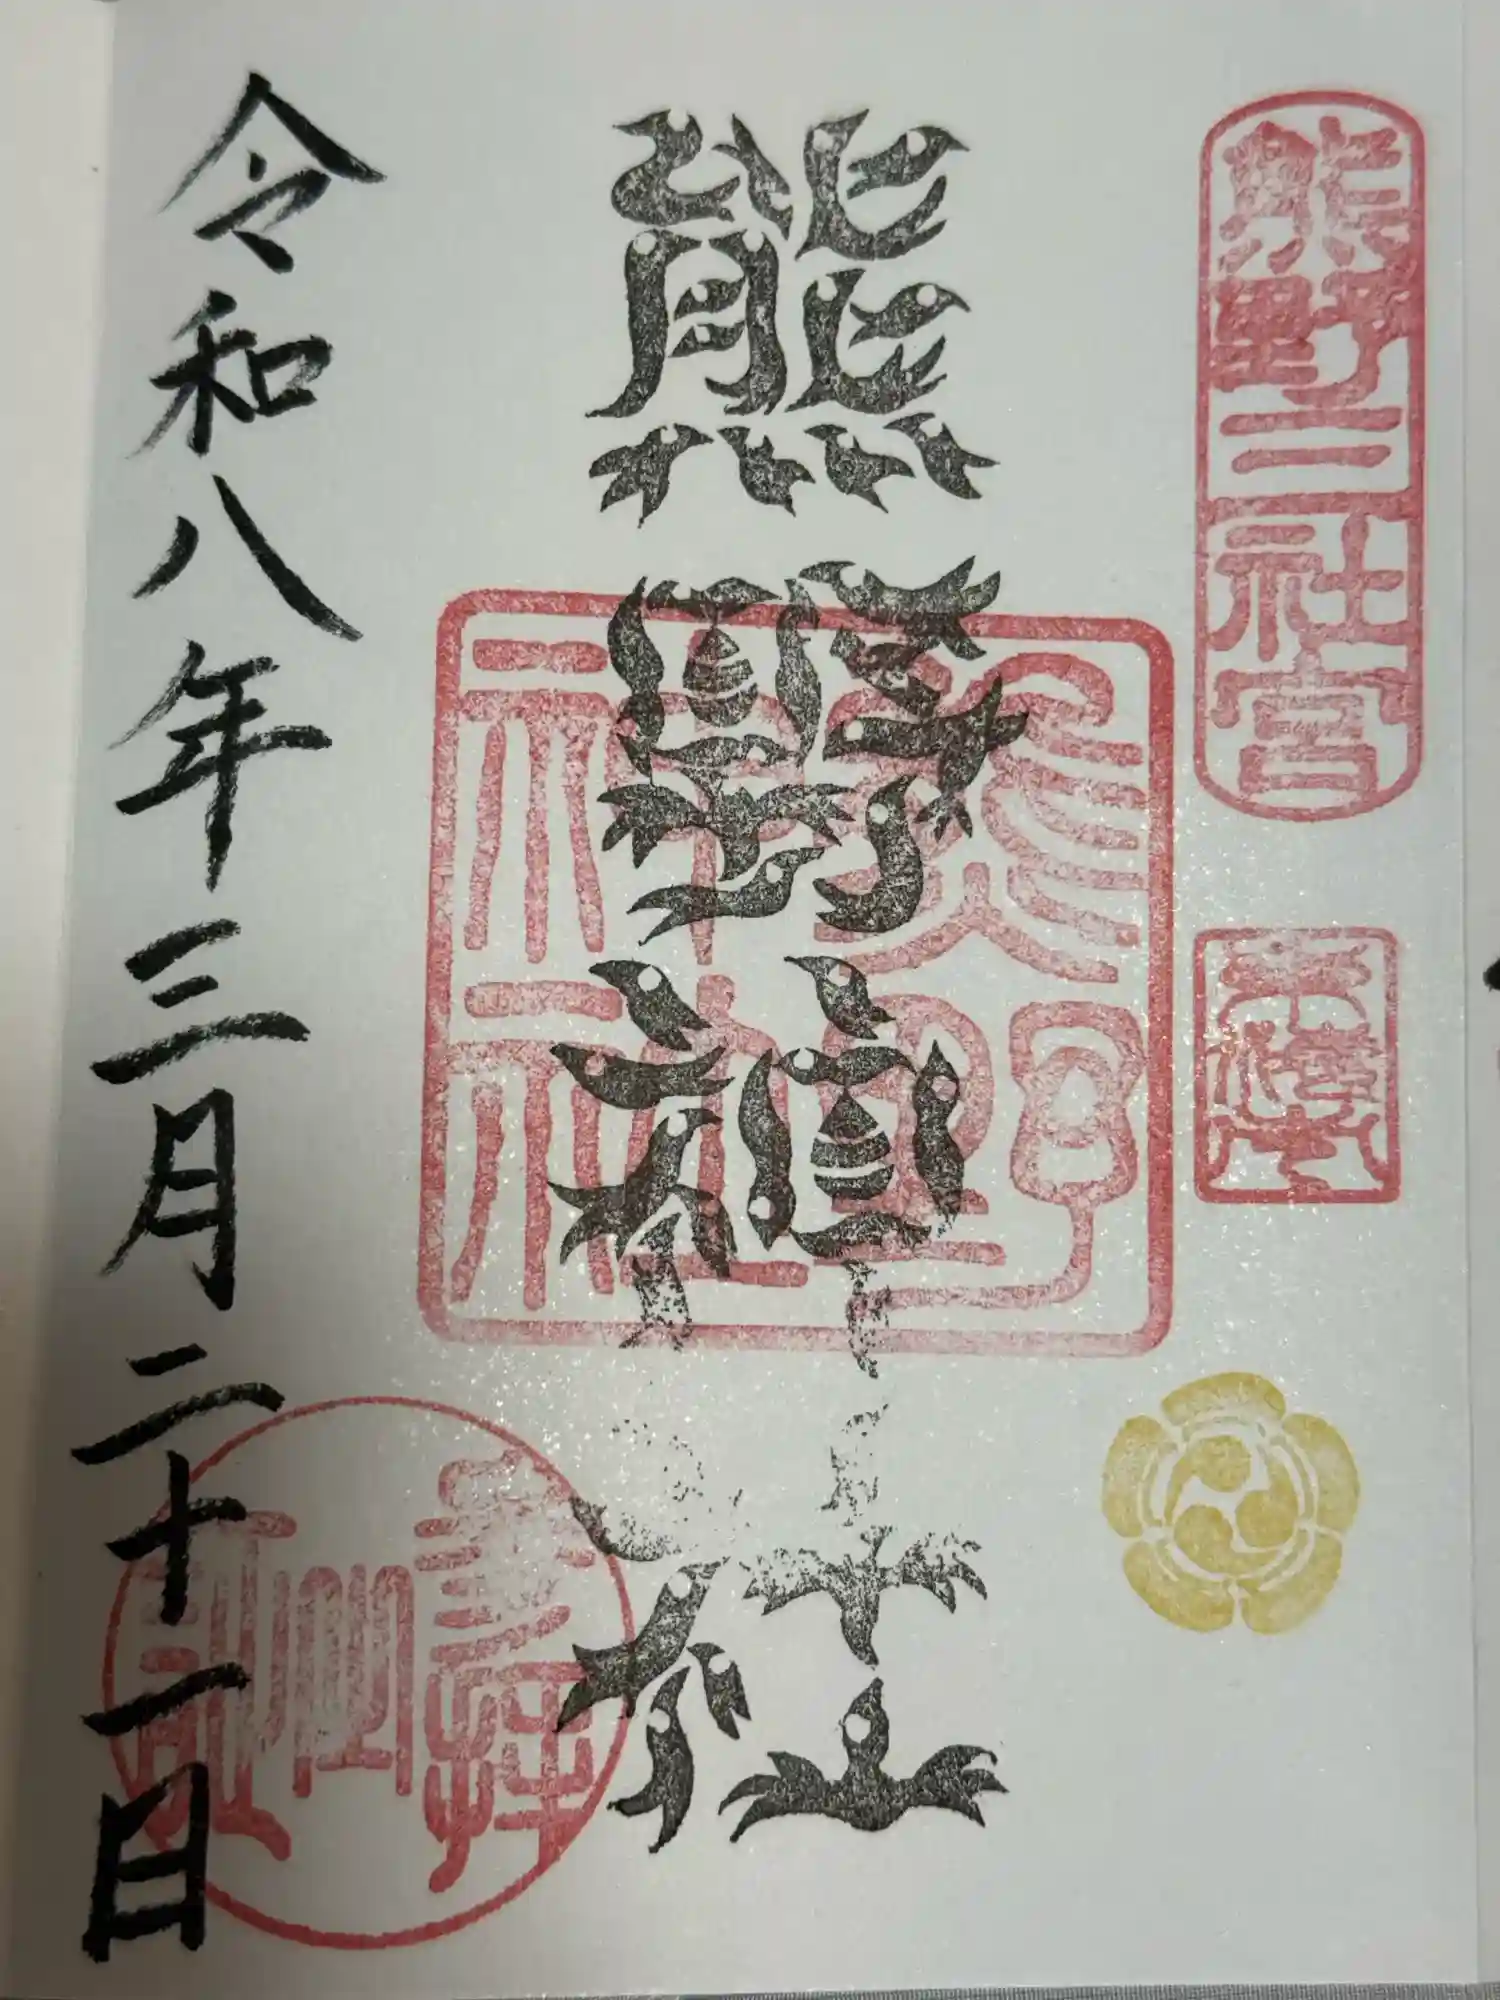 熊野三社宮
熊野神社
熊野神社
令和八年三月二十一日